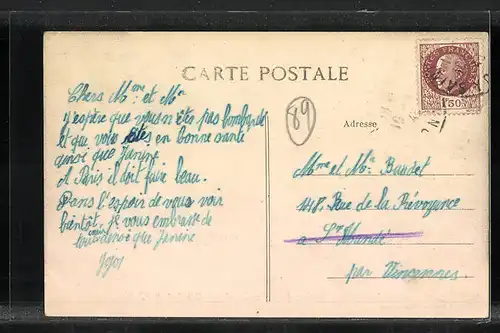 CARTE POSTALE
Chers Mme et Mr
j'espère que vous n'êtes pas bombardé
et que vous êtes en bonne santé
ainsi que Janine.
A Paris il doit faire beau.
Dans l'espoir de vous voir
bientôt, je vous embrasse
ainsi que Janine
89
Adresse
Mme et Mr Baudet
118 Rue de la Prévoyance
a St Mandé
par Vincennes
1F50